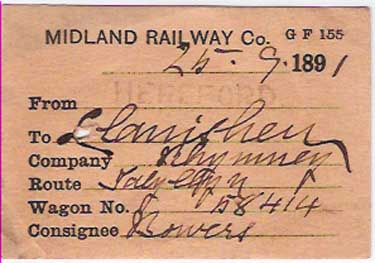 MIDLAND RAILWAY Co. G F 155
25. 9. 1891
From
To Llanishen
Company Rhymney
Route Talyllyn
Wagon No. 58414
Consignee Bowers